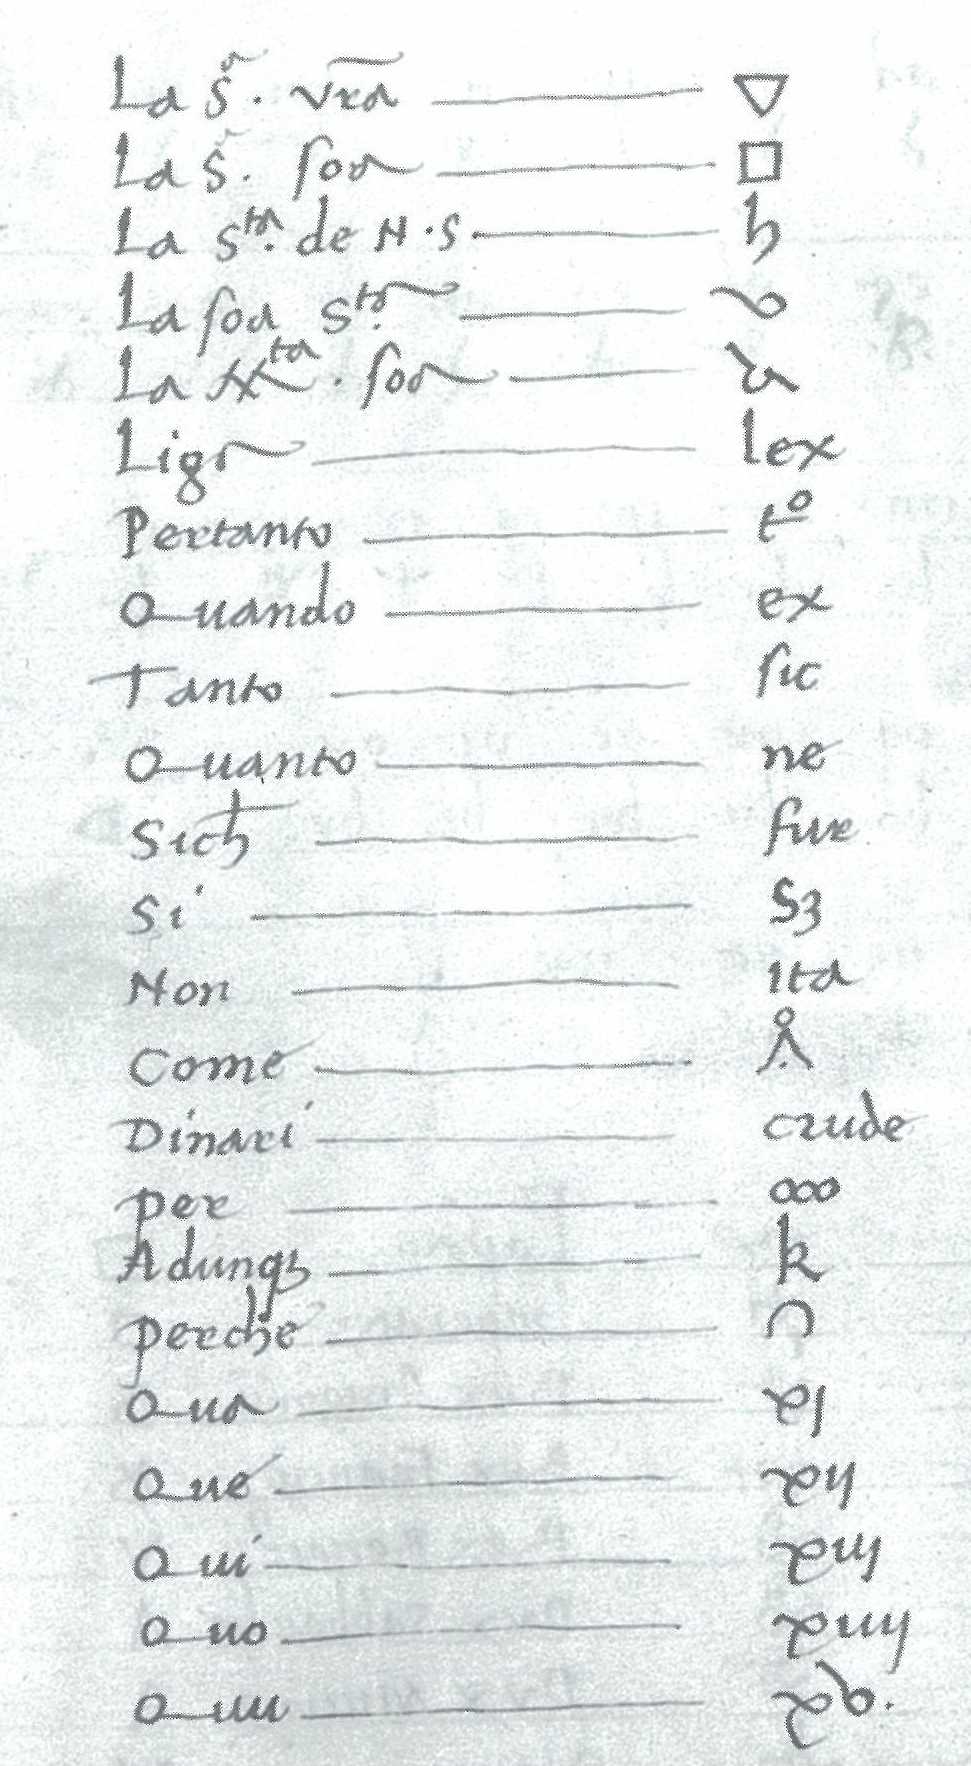 La S.ª vra ▽
La S.ª soa □
La S.ta de N.S. ℏ
La soa S.ta
La xx.ta soa
Ligr lex
Pertanto tº
Quando ex
Tanto sic
Quanto ne
Sich fux
Si S3
Non ita
Come
Dinari crude
per ooo
Adunq3 k
perche
Qua
Que
Qui
Quo
Quu